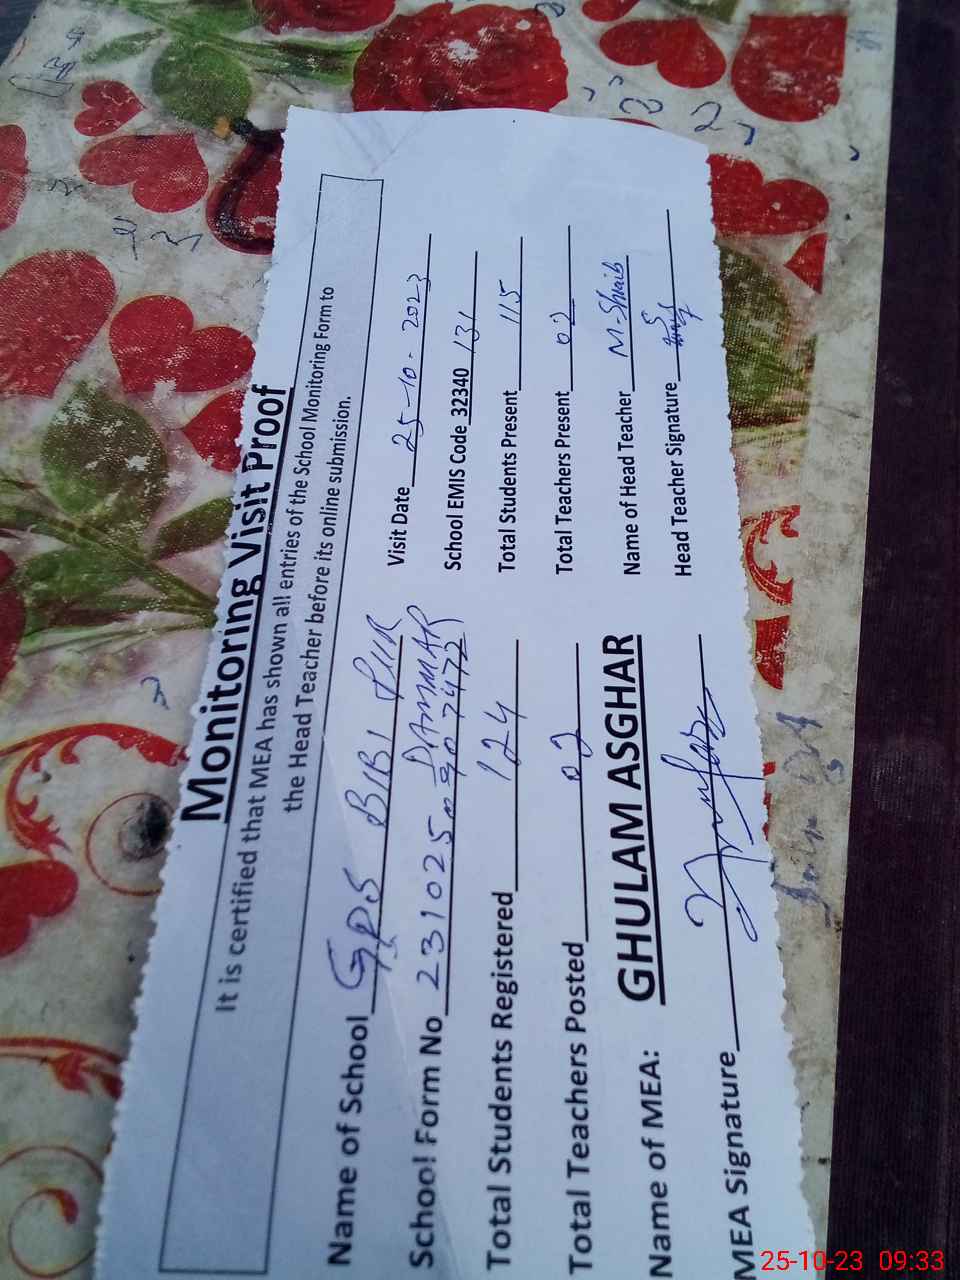 Monitoring Visit Proof
It is certified that MEA has shown all entries of the School Monitoring Form to
the Head Teacher before its online submission.
Name of School GPS BIBI PUR
DAMMAR
Visit Date 25-10-2023
School Form No 231025
School EMIS Code 32340 131
Total Students Registered 124
Total Students Present 115
Total Teachers Posted 02
Total Teachers Present 02
Name of MEA: GHULAM ASGHAR
Name of Head Teacher M-Shoib
MEA Signature
Head Teacher Signature
25-10-23 09:33